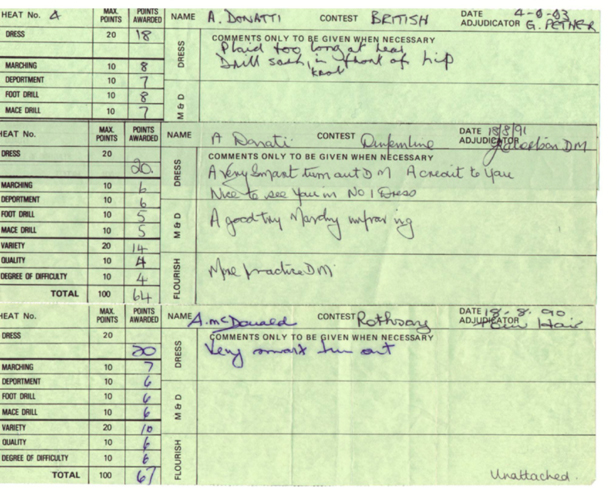 HEAT No. 4 MAX. POINTS POINTS AWARDED NAME A. DONATTI CONTEST BRITISH DATE 4-0-83
ADJUDICATOR G. PETHER
DRESS 20 18 DRESS COMMENTS ONLY TO BE GIVEN WHEN NECESSARY
Plaid too long at heal
Drill sash, in front of hip
knot
MARCHING 10 8 M & D
DEPORTMENT 10 7
FOOT DRILL 10 8
MACE DRILL 10 7
HEAT No. MAX. POINTS POINTS AWARDED NAME A Donati CONTEST DATE 18/8/91
ADJUDICATOR DM
DRESS 20 20 DRESS COMMENTS ONLY TO BE GIVEN WHEN NECESSARY
A very smart turn out DM A credit to you
Nice to see you in No 1 Dress
MARCHING 10 6
DEPORTMENT 10 6
FOOT DRILL 10 5 M & D A good try improving
MACE DRILL 10 5
VARIETY 20 14 FLOURISH More practice DM
QUALITY 10 4
DEGREE OF DIFFICULTY 10 4
TOTAL 100 64
HEAT No. MAX. POINTS POINTS AWARDED NAME A. McDonald CONTEST Rothsay DATE 18-8-90
ADJUDICATOR Hair
DRESS 20 20 DRESS COMMENTS ONLY TO BE GIVEN WHEN NECESSARY
Very smart turn out
MARCHING 10 7
DEPORTMENT 10 6
FOOT DRILL 10 6 M & D
MACE DRILL 10 6
VARIETY 20 10 FLOURISH
QUALITY 10 6
DEGREE OF DIFFICULTY 10 6
TOTAL 100 67 Unattached.